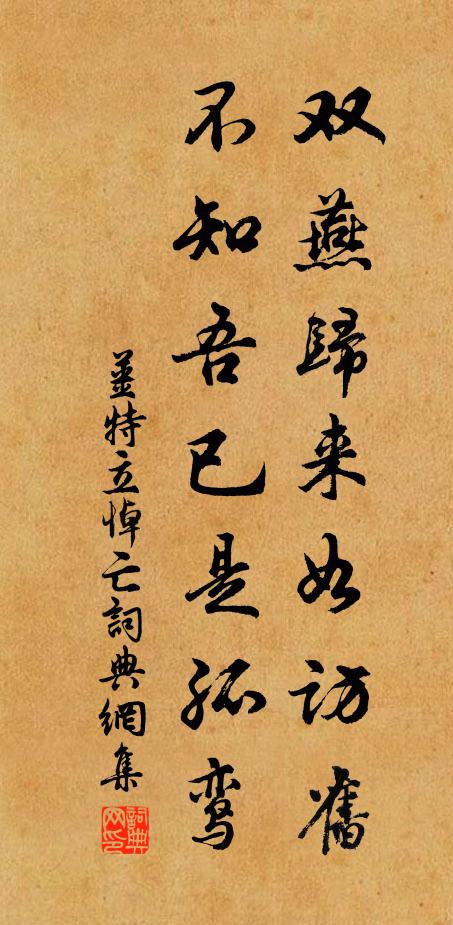 双燕歸来如访舊
不知吾已是孤鸾
姜特立悼亡詞典網集
詞典网印